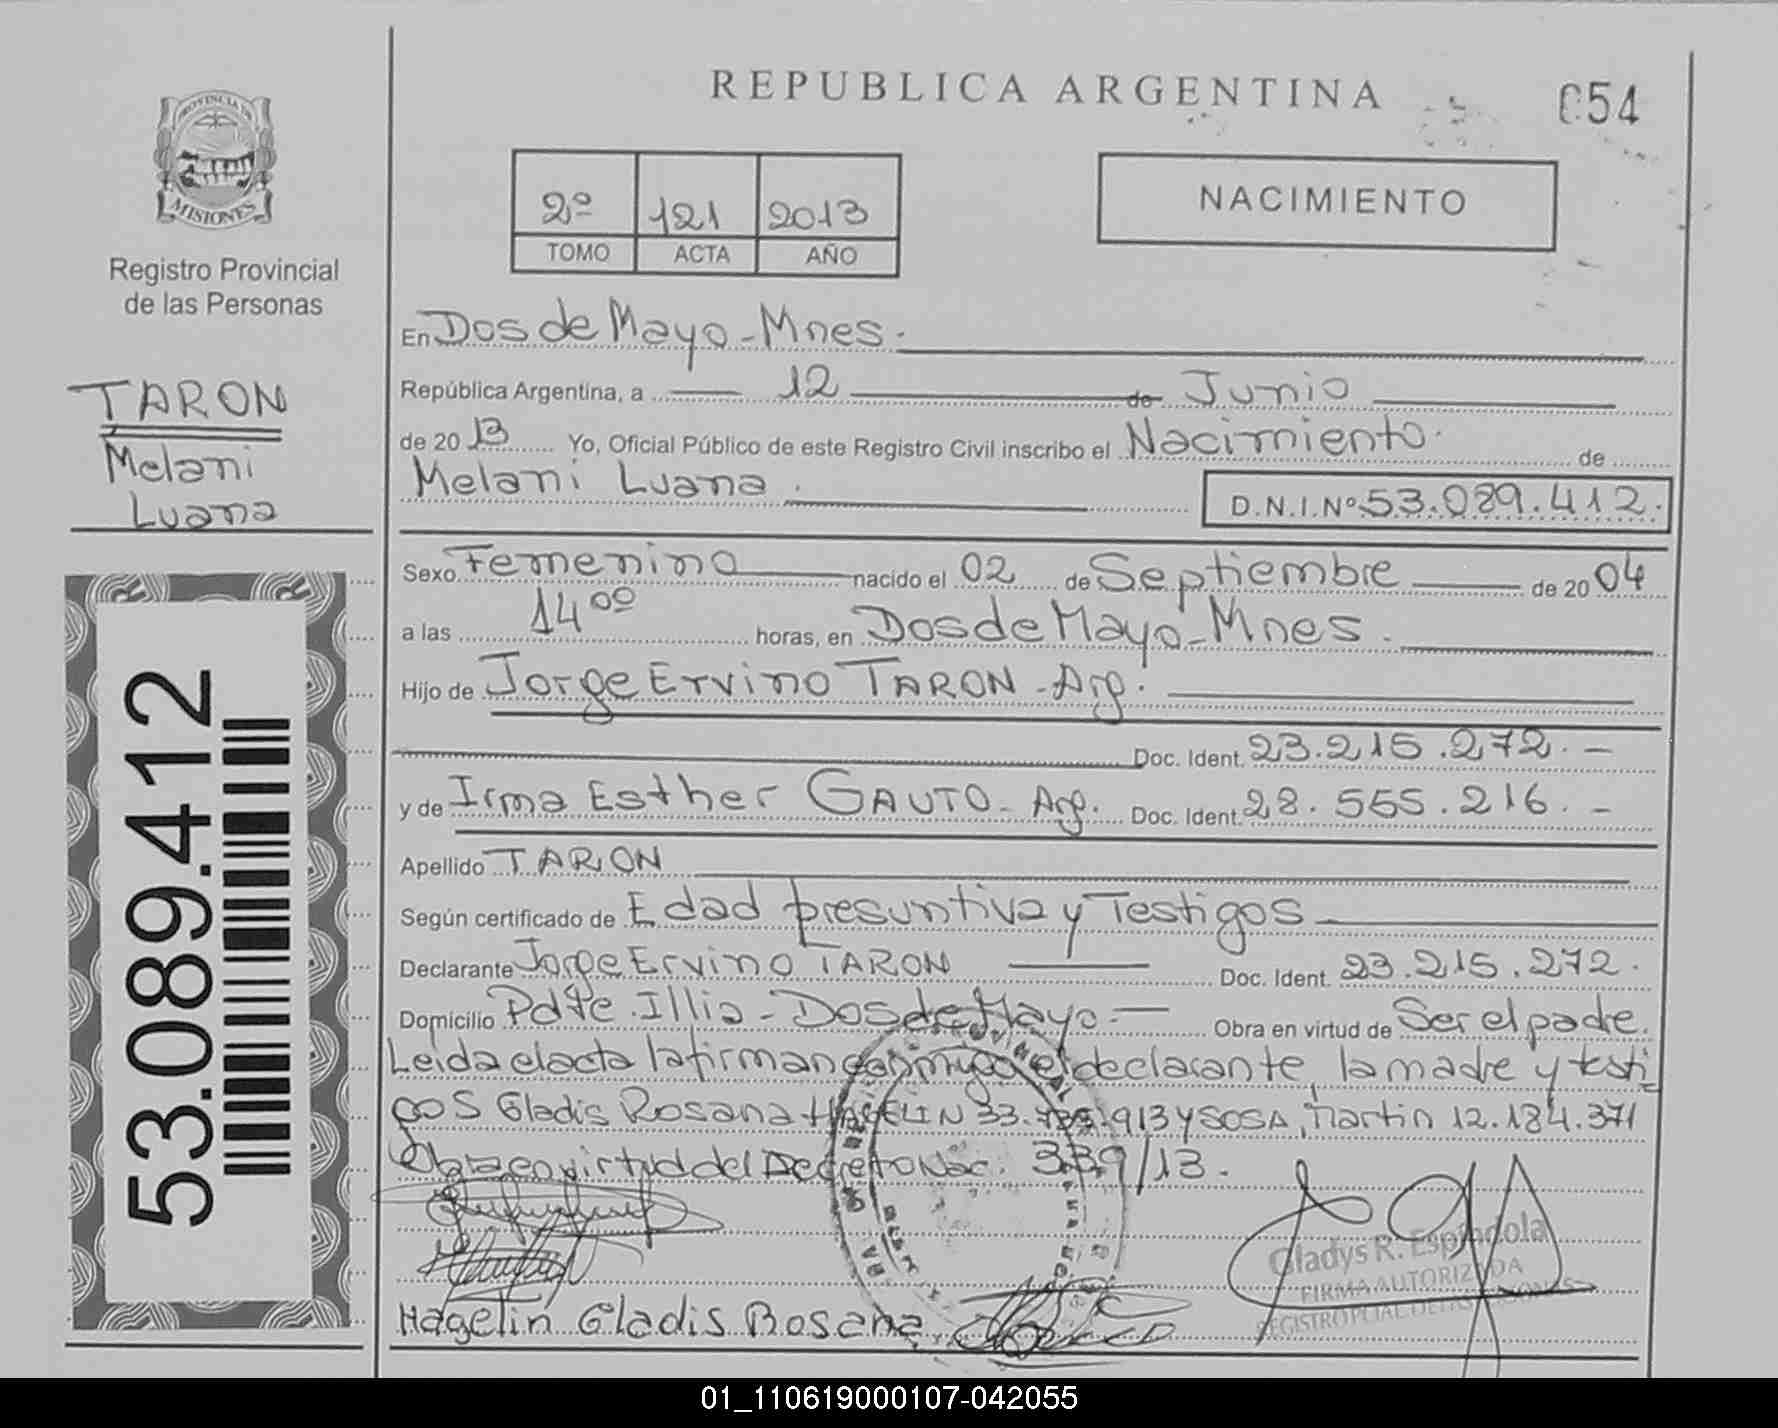 REPUBLICA ARGENTINA
054
PROVINCIA DE
MISIONES
Registro Provincial
de las Personas
2º 121 2013
TOMO ACTA AÑO
NACIMIENTO
TARON
Melani
Luana
53.089.412
En Dos de Mayo - Mnes.
República Argentina, a 12 de Junio
de 2013 Yo, Oficial Público de este Registro Civil inscribo el Nacimiento de
Melani Luana. D.N.I.Nº 53.089.412.
Sexo Femenino nacido el 02 de Septiembre de 2004
a las 14 00 horas, en Dos de Mayo - Mnes.
Hijo de Jorge Ervino TARON - Arg.
Doc. Ident. 23.215.272. -
y de Irma Esther GAUTO - Arg. Doc. Ident. 28.555.216. -
Apellido TARON
Según certificado de Edad presuntiva y Testigos
Declarante Jorge Ervino TARON Doc. Ident. 23.215.272.
Domicilio Pdte. Illia - Dos de Mayo. - Obra en virtud de Ser el padre.
Leida el acta la firman conmigo el declarante, la madre y testi
gos Gladis Rosana HAGELIN 33. .913 y SOSA, Martin 12.184.371
en virtud del Decreto Nac. 339/13.
Gladys R. Espindola
FIRMA AUTORIZADA
Hagelin Gladis Rosana
01_110619000107-042055